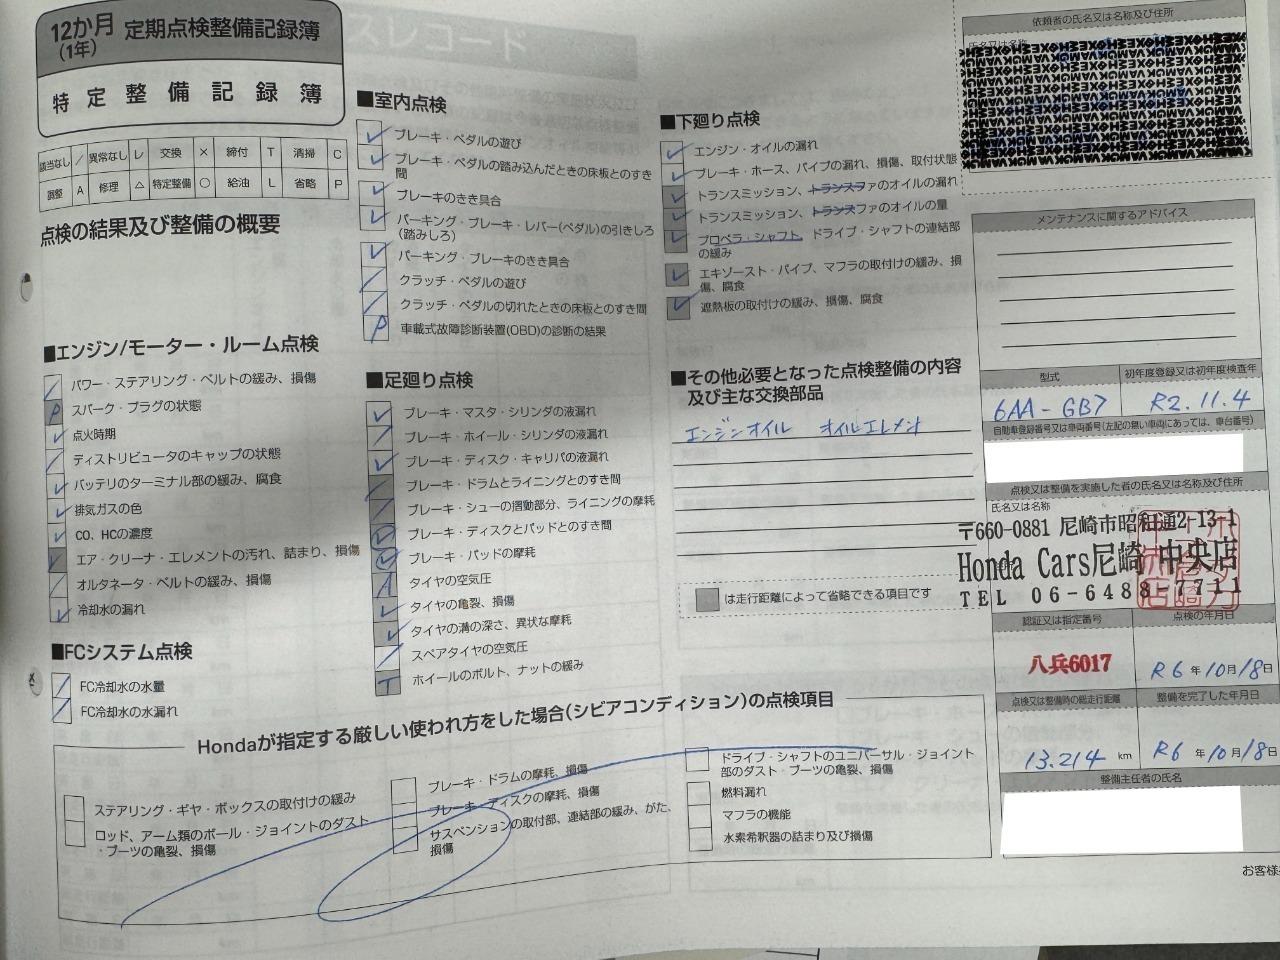 12か月
(1年)
定期点検整備記録簿
特定整備記録簿
該当なし / 異常なし レ 交換 × 締付 T 清掃 C
調整 A 修理 △ 特定整備 ○ 給油 L 省略 P
点検の結果及び整備の概要
■エンジン/モーター・ルーム点検
/ パワー・ステアリング・ベルトの緩み、損傷
P スパーク・プラグの状態
レ 点火時期
/ ディストリビュータのキャップの状態
レ バッテリのターミナル部の緩み、腐食
レ 排気ガスの色
レ CO、HCの濃度
レ エア・クリーナ・エレメントの汚れ、詰まり、損傷
/ オルタネータ・ベルトの緩み、損傷
レ 冷却水の漏れ
■FCシステム点検
/ FC冷却水の水量
/ FC冷却水の水漏れ
■室内点検
レ ブレーキ・ペダルの遊び
レ ブレーキ・ペダルの踏み込んだときの床板とのすき
間
レ ブレーキのきき具合
レ パーキング・ブレーキ・レバー(ペダル)の引きしろ
(踏みしろ)
レ パーキング・ブレーキのきき具合
/ クラッチ・ペダルの遊び
/ クラッチ・ペダルの切れたときの床板とのすき間
P 車載式故障診断装置(OBD)の診断の結果
■足廻り点検
レ ブレーキ・マスタ・シリンダの液漏れ
/ ブレーキ・ホイール・シリンダの液漏れ
レ ブレーキ・ディスク・キャリパの液漏れ
/ ブレーキ・ドラムとライニングとのすき間
/ ブレーキ・シューの摺動部分、ライニングの摩耗
レ ブレーキ・ディスクとパッドとのすき間
レ ブレーキ・パッドの摩耗
A タイヤの空気圧
レ タイヤの亀裂、損傷
レ タイヤの溝の深さ、異状な摩耗
/ スペアタイヤの空気圧
T ホイールのボルト、ナットの緩み
■下廻り点検
レ エンジン・オイルの漏れ
レ ブレーキ・ホース、パイプの漏れ、損傷、取付状態
レ トランスミッション、トランスファのオイルの漏れ
レ トランスミッション、トランスファのオイルの量
レ プロペラ・シャフト、ドライブ・シャフトの連結部
の緩み
レ エキゾースト・パイプ、マフラの取付けの緩み、損
傷、腐食
レ 遮熱板の取付けの緩み、損傷、腐食
■その他必要となった点検整備の内容
及び主な交換部品
エンジンオイル オイルエレメント
は走行距離によって省略できる項目です
Hondaが指定する厳しい使われ方をした場合(シビアコンディション)の点検項目
ステアリング・ギヤ・ボックスの取付けの緩み
ロッド、アーム類のボール・ジョイントのダスト
・ブーツの亀裂、損傷
ブレーキ・ドラムの摩耗、損傷
ブレーキ・ディスクの摩耗、損傷
サスペンションの取付部、連結部の緩み、がた、
損傷
ドライブ・シャフトのユニバーサル・ジョイント
部のダスト・ブーツの亀裂、損傷
燃料漏れ
マフラの機能
水素希釈器の詰まり及び損傷
依頼者の氏名又は名称及び住所
氏名又は名称
メンテナンスに関するアドバイス
型式
初年度登録又は初年度検査年
6AA-GB7
R2.11.4
自動車登録番号又は車両番号(左記の無い車両にあっては、車台番号)
点検又は整備を実施した者の氏名又は名称及び住所
氏名又は名称
〒660-0881 尼崎市昭和通2-13-1
Honda Cars尼崎 中央店
TEL 06-6488-7711
認証又は指定番号
点検の年月日
八兵6017
R6年10月18日
点検又は整備時の総走行距離
整備を完了した年月日
13.214 km
R6年10月18日
整備主任者の氏名
お客様